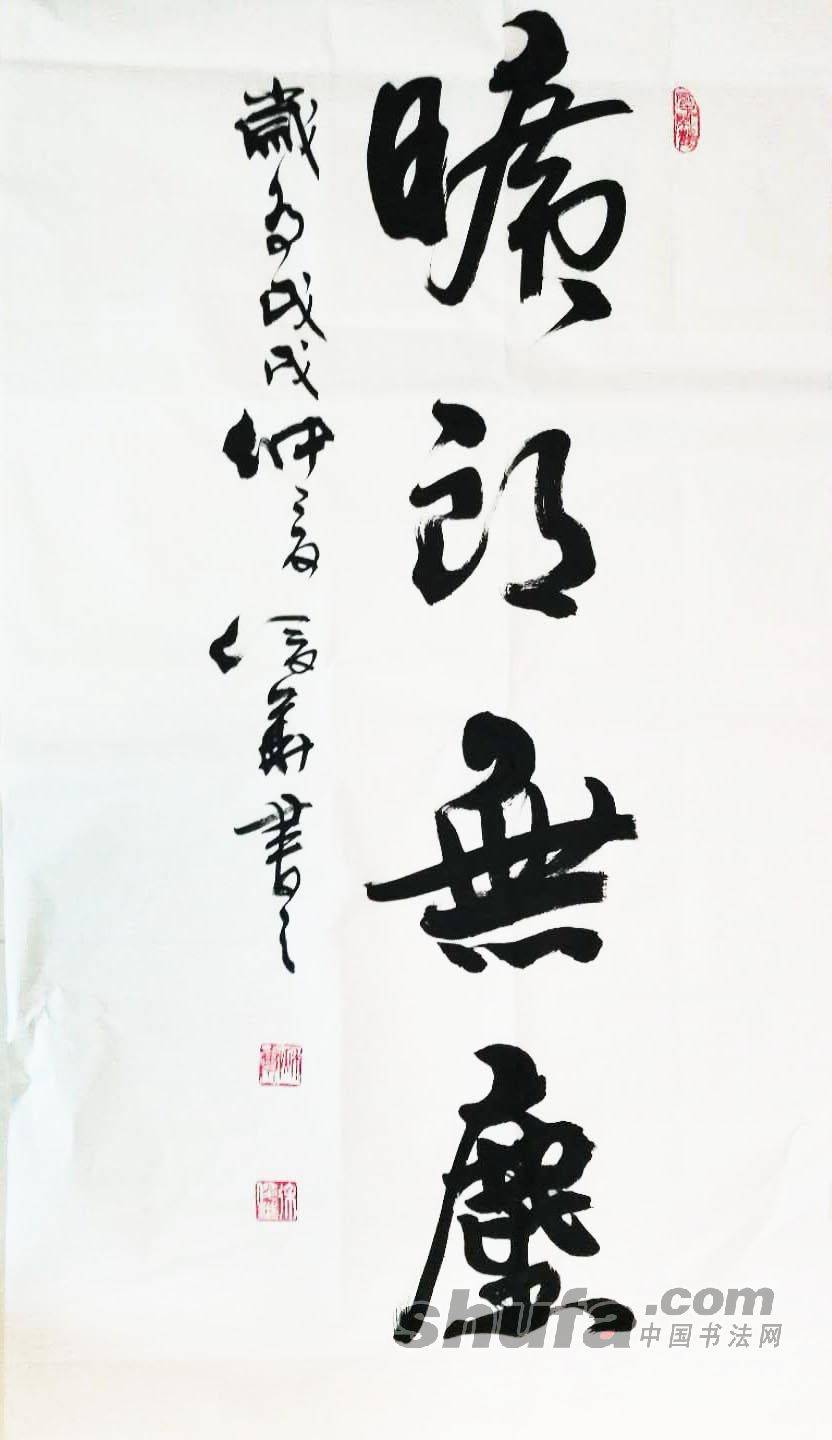 曠朗無塵
歲为戊戌仲夏
華書之
shufa.com
中国书法网